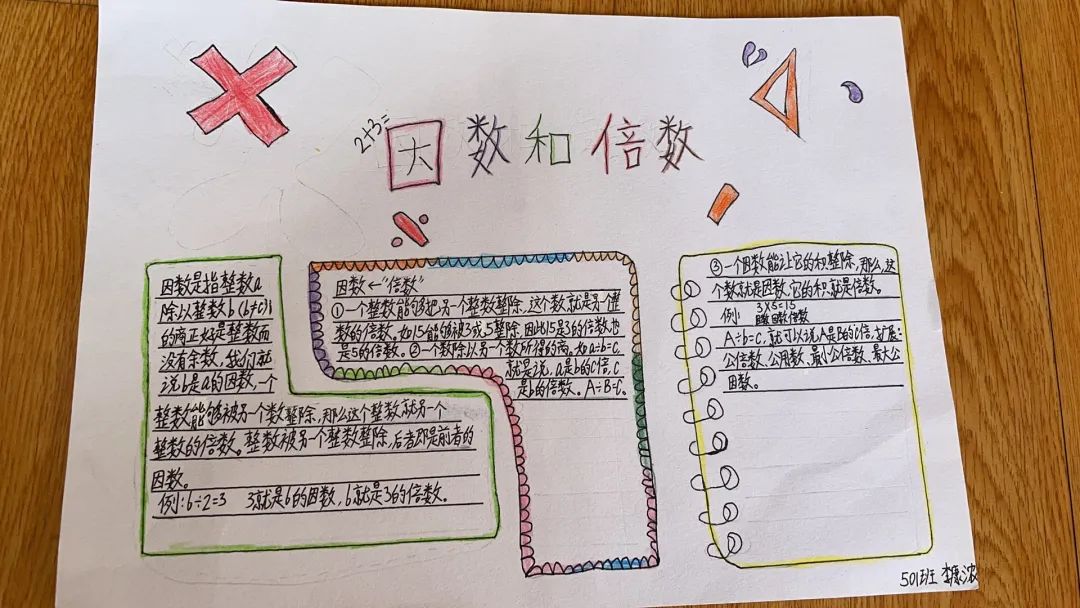 2+3=
因数和倍数
因数是指整数a
除以整数b(b≠0)
的商正好是整数而
没有余数,我们就
说b是a的因数,一个
整数能够被另一个数整除,那么这个整数就另一个
整数的倍数。整数被另一个整数整除,后者即是前者的
因数。
例:6÷2=3 3就是6的因数,6就是3的倍数。
因数←"倍数"
①一个整数能够把另一个整数整除,这个数就是另个整
数的倍数。如15能够被3或5整除,因此15是3的倍数,也
是5的倍数。②一个数除以另个数所得的商。如a÷b=c,
就是说,a是b的C倍,C
是b的倍数。A÷B=C。
③一个因数能让它的积整除,那么,这
个数就是因数,它的积就是倍数。
3×5=15
例: 因数 因数 倍数
A÷b=C,就可以说A是B的C倍,扩展:
公倍数、公用数、最小公倍数、最大公
因数。
501班 李